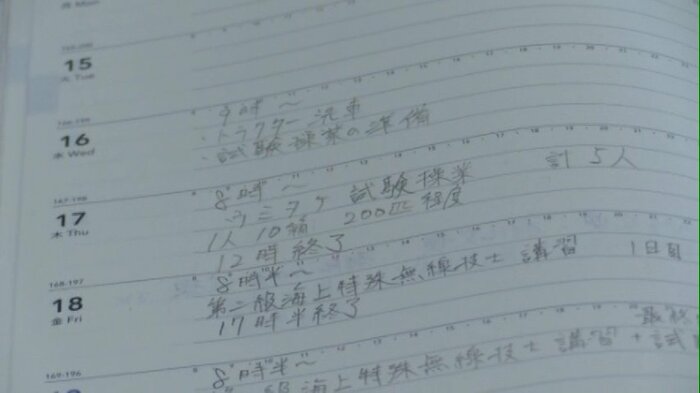 月 Mon
15
火 Tue
16
水 Wed
9時～
・トラクター 洗車
・試験操業の準備
167-198
17
木 Thu
8時～
ウニタゲ 試験操業 計 5人
1人 10箱 200匹 程度
12時 終了
168-197
18
金 Fri
8時半～
第二級海上特殊無線技士 講習 1日目
17時半終了
169-196
8時半～
級海上特殊無線技士 講習 + 試
最終